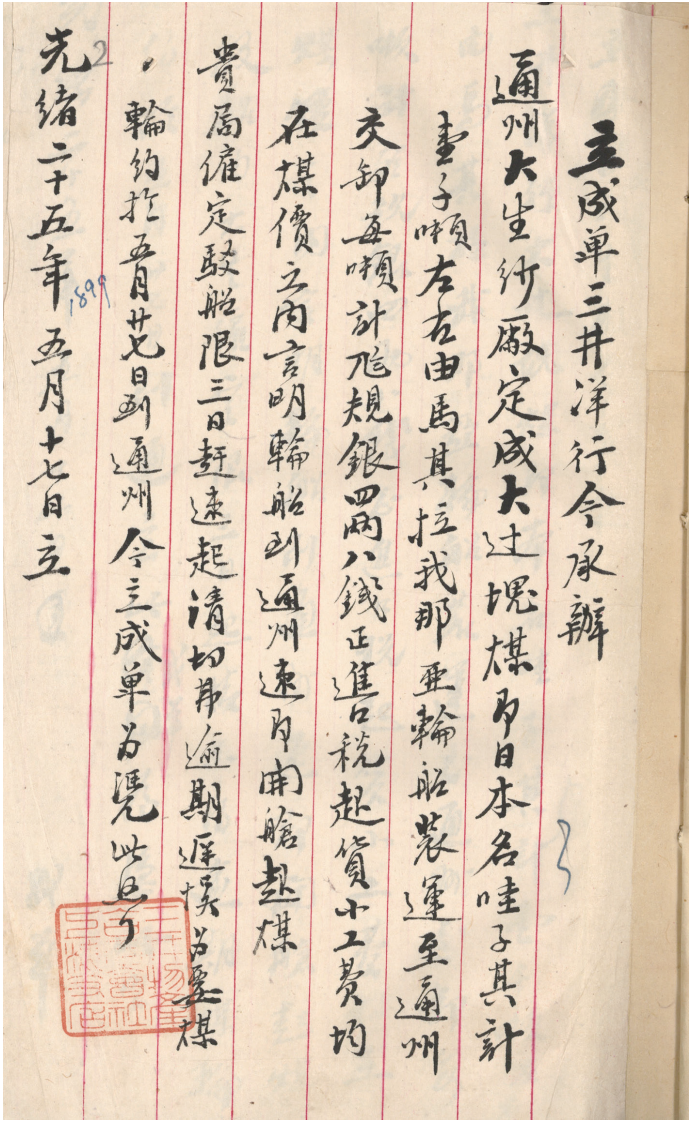 立成单三井洋行今承辦
通州大生纱廠定成大过塊煤即日本名哇子其計
壹千噸左右由馬其拉我那亚輪船装運至通州
交卸每噸計規銀四兩八錢正進口税起貨小工費均
在煤價之内言明輪船到通州速即開艙起煤
貴局僱定駁船限三日赶速起清切弗逾期遲悮为要煤
輪約於五月廿七日到通州今立成单为凭此照
光緒二十五年五月十七日立
2
1899